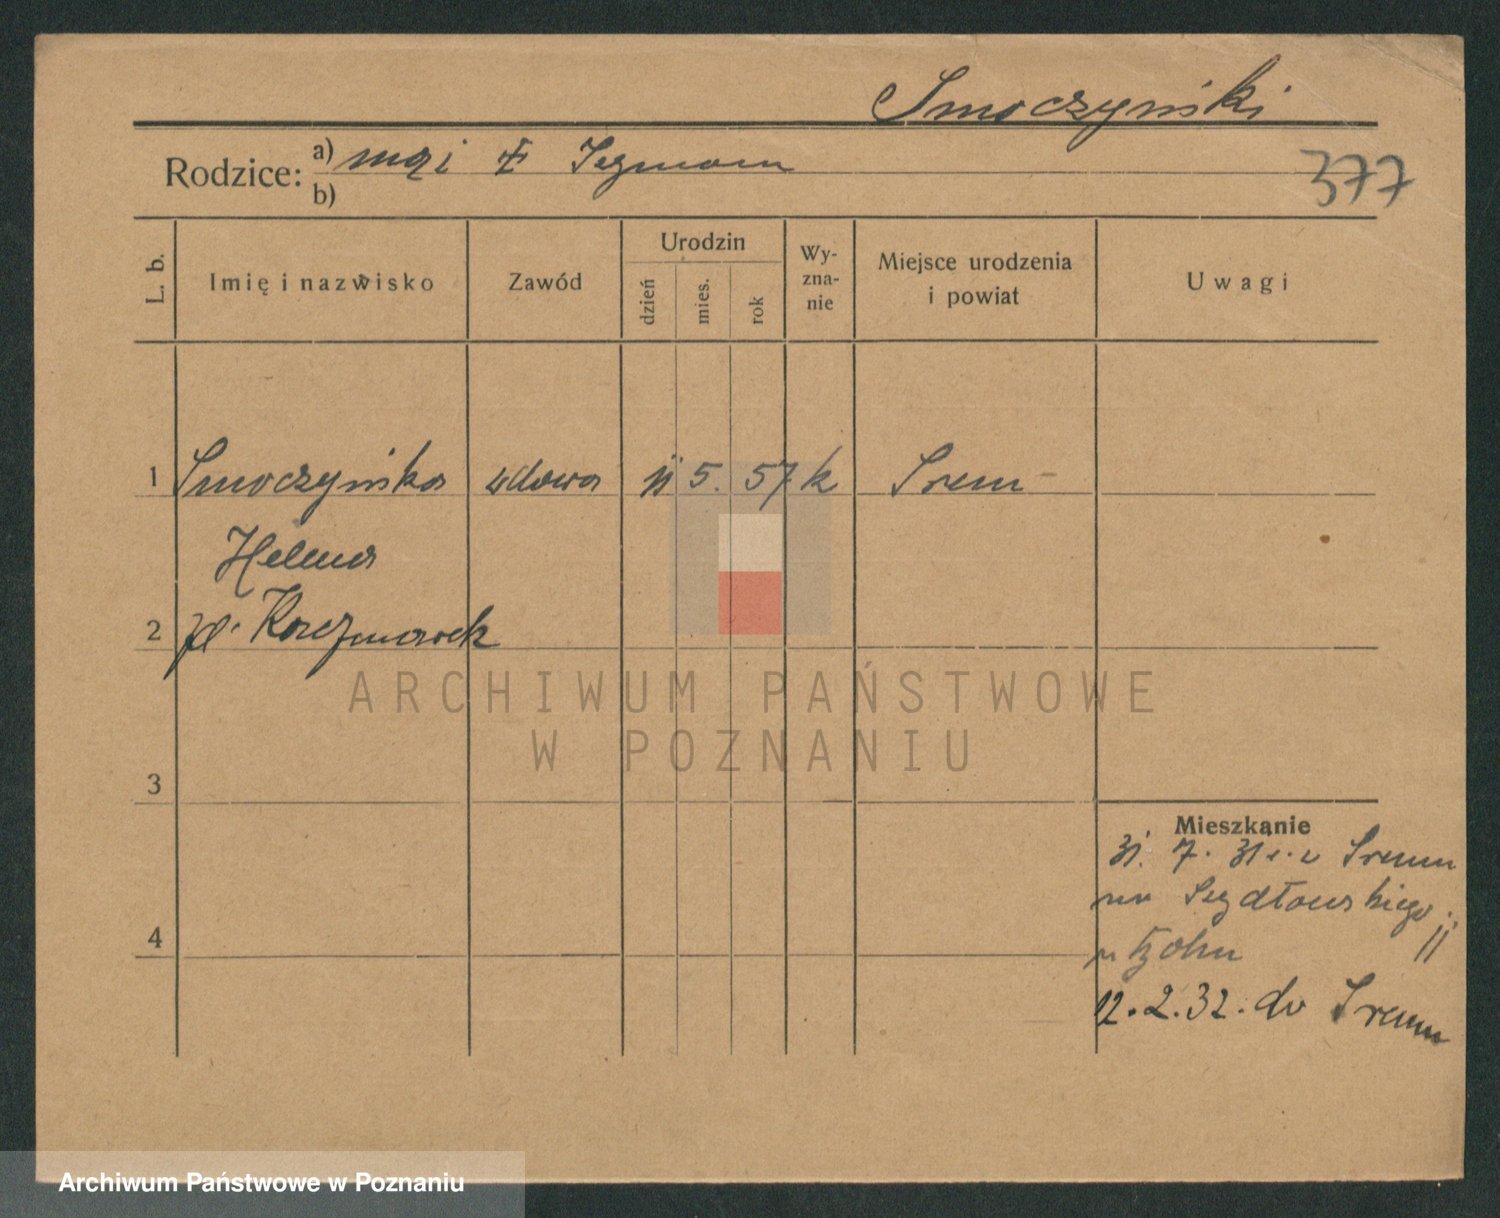 Smoczyński
Rodzice: a) mąż
b)
377
L. b.
Imię i nazwisko
Zawód
Urodzin
dzień
mies.
rok
Wy-
zna-
nie
Miejsce urodzenia
i powiat
Uwagi
1 Smoczyńska wdowa 11 5. 57 k Srem
Helena
2 Kaczmarek
ARCHIWUM PAŃSTWOWE
W POZNANIU
3
Mieszkanie
31. 7. 31 Sremu
Szydłowskiego 11
4
12. 2. 32. do Sremu
Archiwum Państwowe w Poznaniu